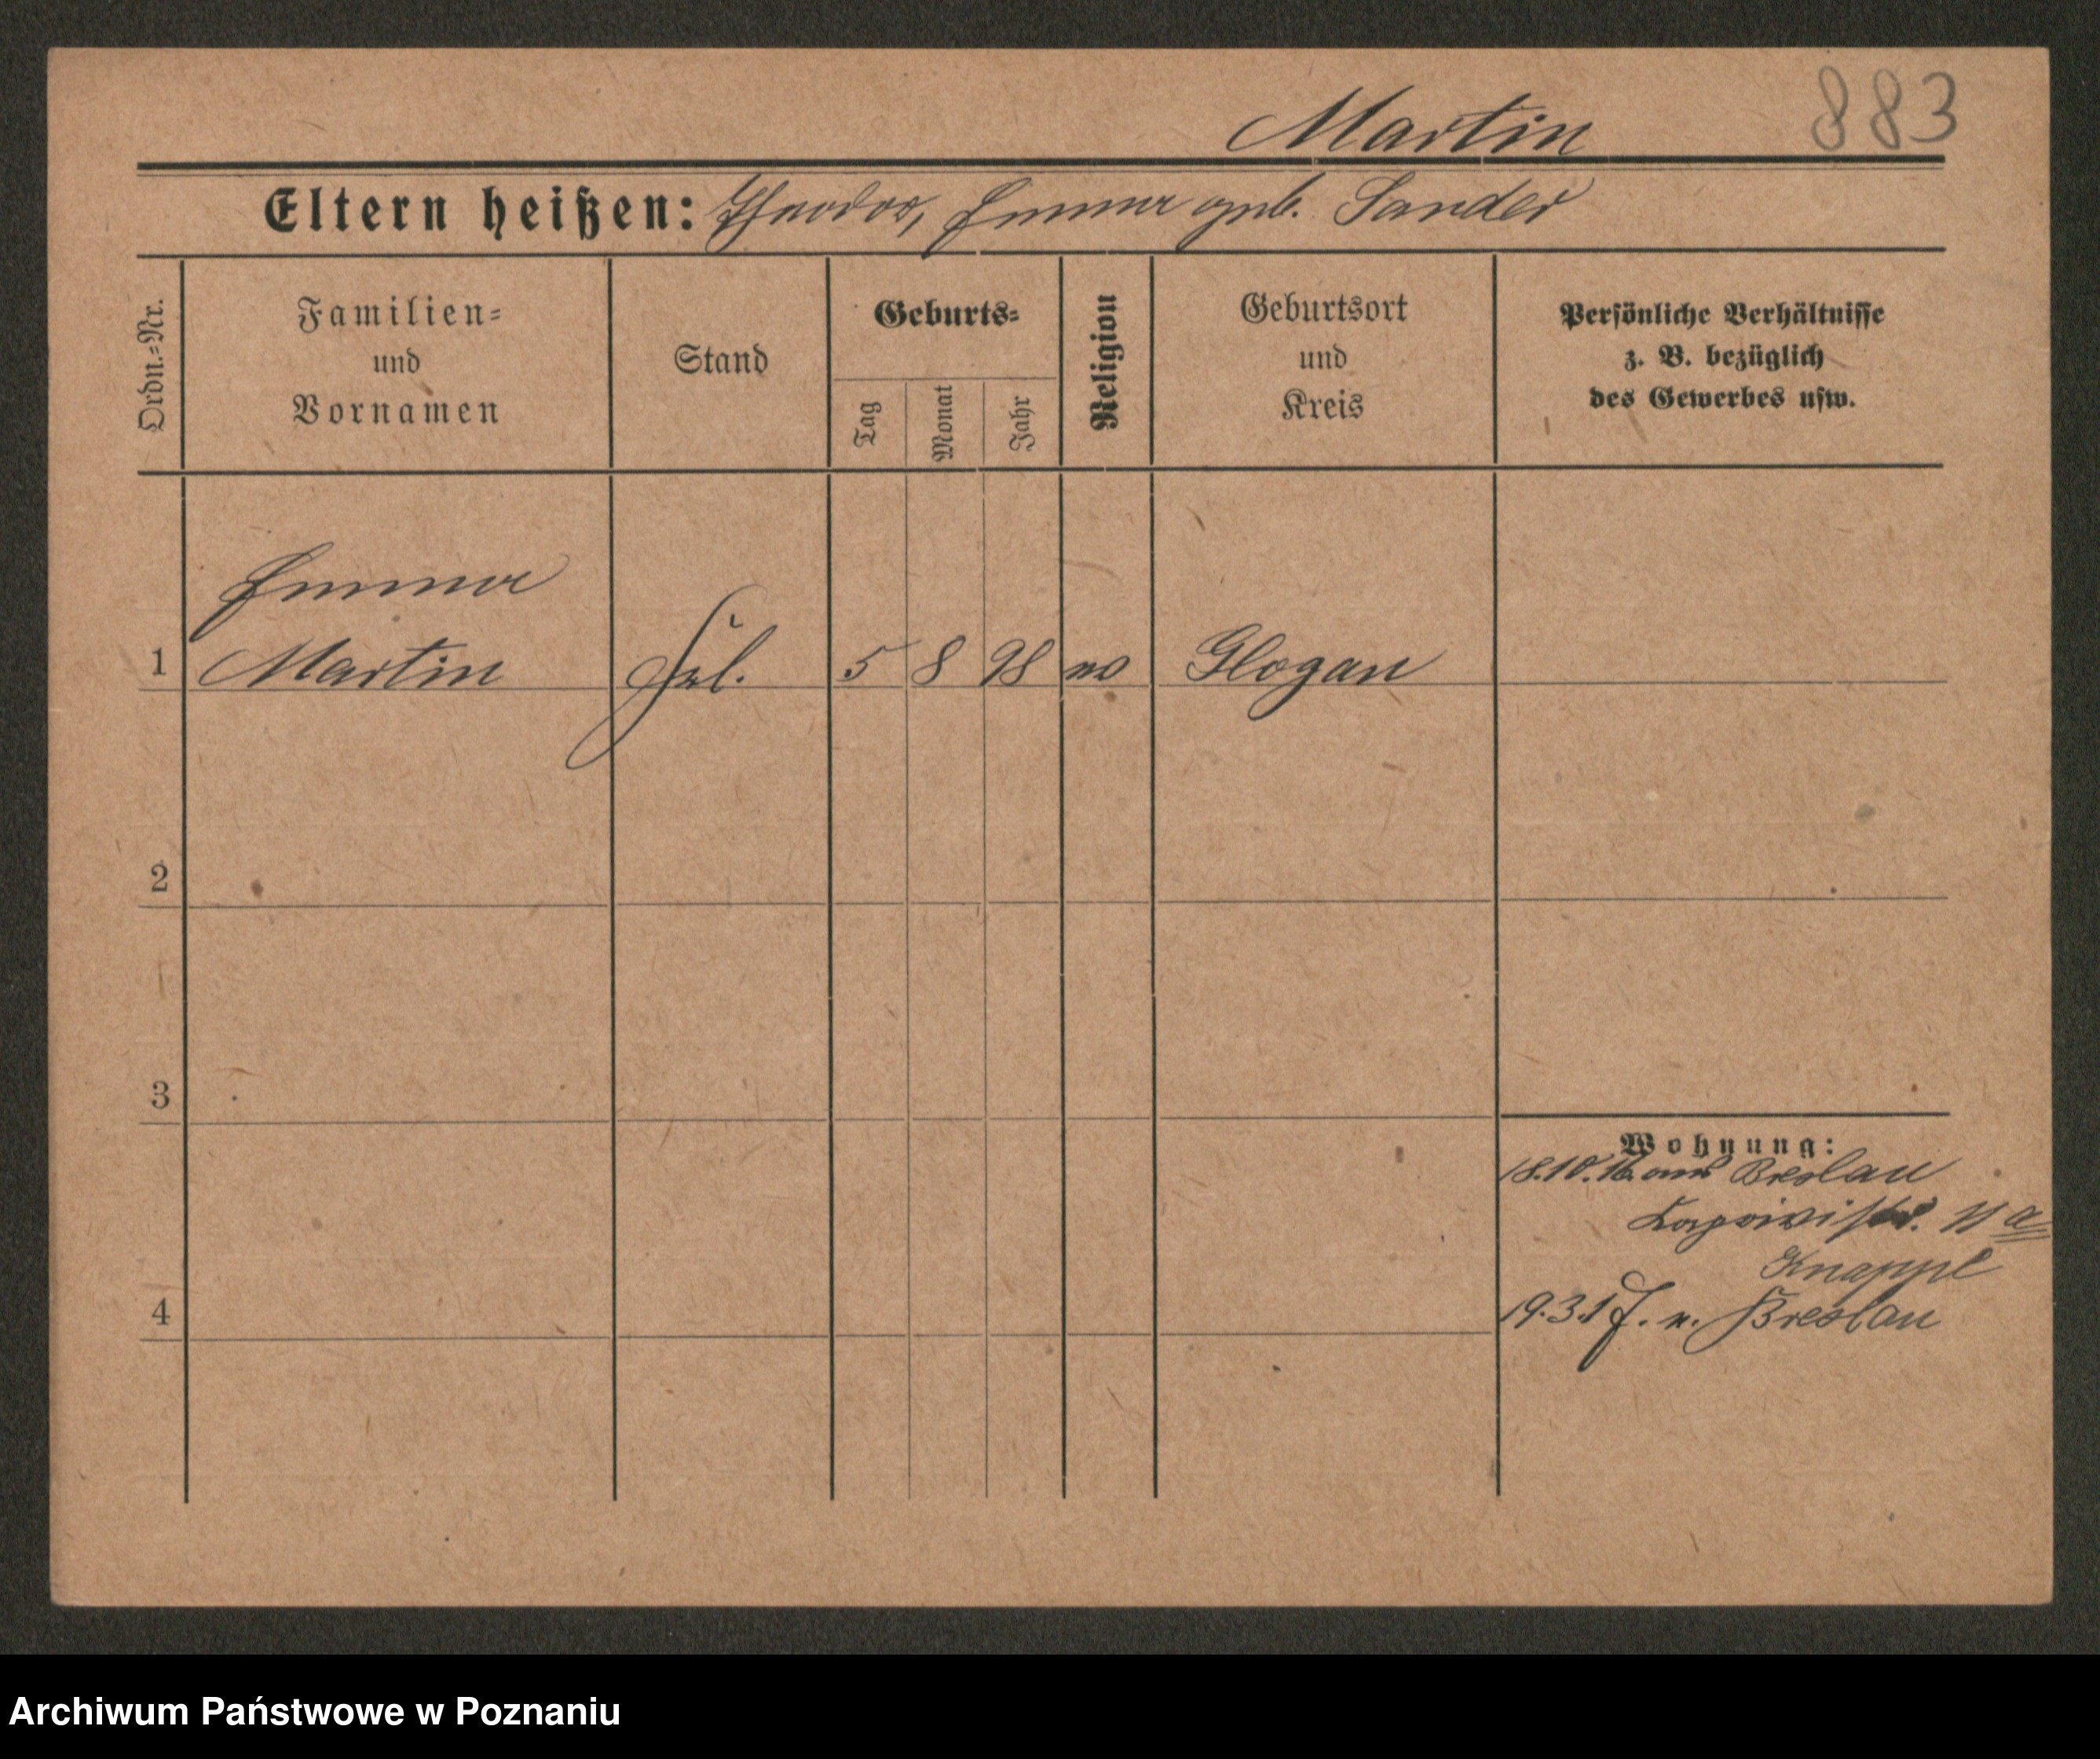 883
Martin
Eltern heißen: Theodor, Emma geb. Sander
Ordn.=Nr.
Familien=
und
Vornamen
Stand
Geburts=
Tag
Monat
Jahr
Religion
Geburtsort
und
Kreis
Persönliche Verhältnisse
z. B. bezüglich
des Gewerbes usw.
Emma
1 Martin Frl. 5 8 98 Glogau
2
3
Wohnung:
18.10.16. aus Breslau
11 a
Knappe
19.3.17. n. Breslau
4
Archiwum Państwowe w Poznaniu